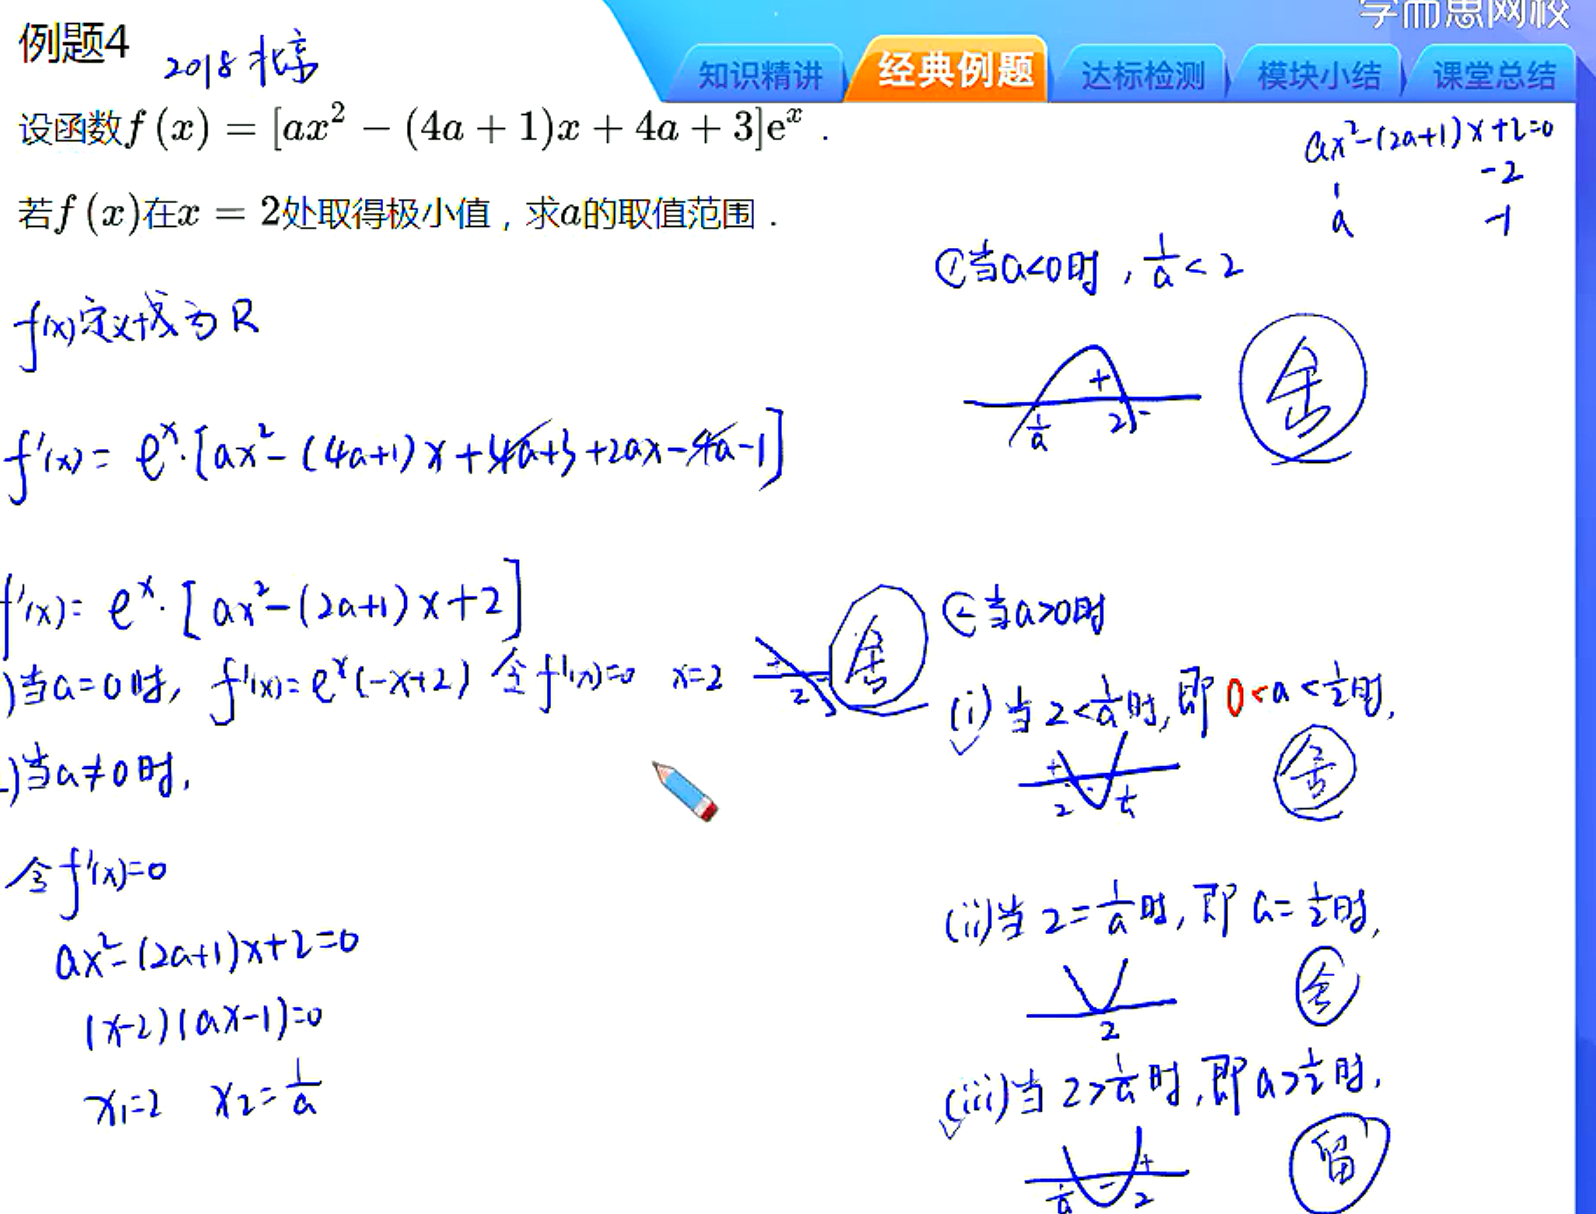 学而思网校
例题4
2018北京
知识精讲
经典例题
达标检测
模块小结
课堂总结
设函数f(x) = [ax² − (4a + 1)x + 4a + 3]eˣ .
若f(x)在x = 2处取得极小值，求a的取值范围．
f(x)定义域为R
f'(x) = eˣ·[ax²-(4a+1)x+4a+3+2ax-4a-1]
f'(x) = eˣ·[ax²-(2a+1)x+2]
)当a=0时, f'(x)=eˣ(-x+2) 令f'(x)=0 x=2
+
2
-
舍
)当a≠0时,
令f'(x)=0
ax²-(2a+1)x+2=0
(x-2)(ax-1)=0
x₁=2 x₂=1/a
ax²-(2a+1)x+2=0
1 -2
a -1
①当a<0时, 1/a<2
+
1/a 2 -
舍
②当a>0时
(i)当2<1/a时,即0<a<1/2时,
+
2 - 1/a
舍
(ii)当2=1/a时,即a=1/2时,
2
舍
(iii)当2>1/a时,即a>1/2时,
+
1/a - 2
留